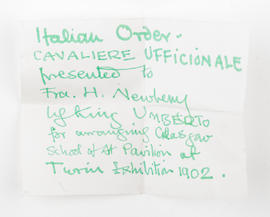 Italian Order.
CAVALIERE UFFICIONALE
presented to
Fra. H. Newbery
by King UMBERTO
for arranging Glasgow
School of Art Pavilion at
Turin Exhibition 1902.